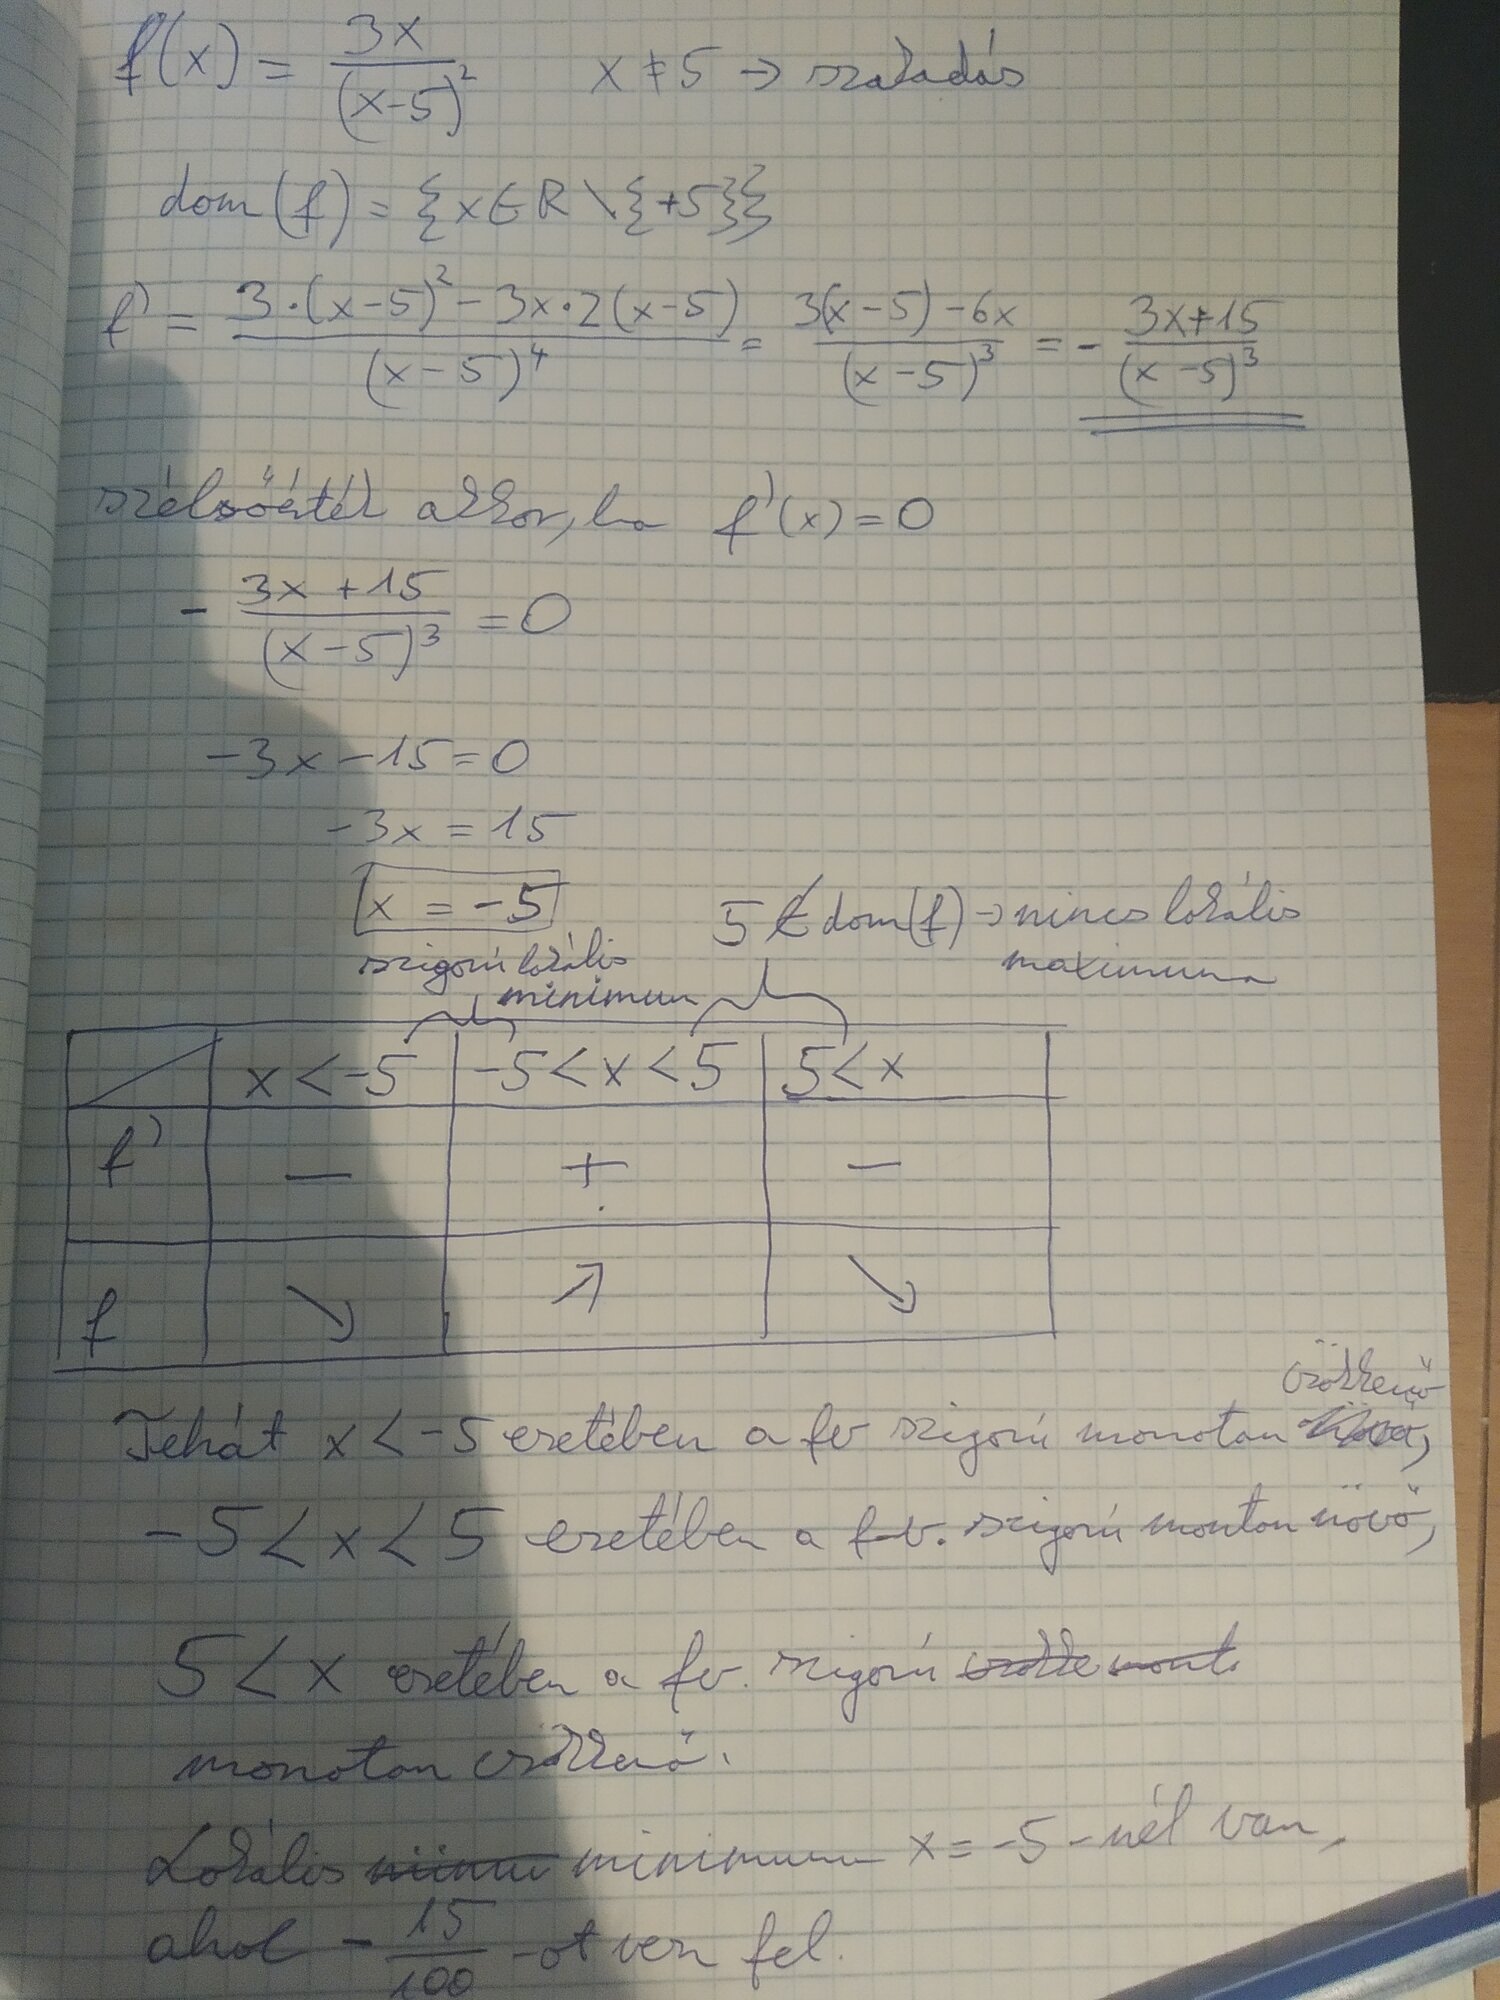 f(x) = 3x/(x-5)² x ≠ 5 → szakadás
dom(f) = {x∈R \ {+5}}
f' = (3·(x-5)² - 3x·2(x-5))/(x-5)⁴ = (3(x-5) - 6x)/(x-5)³ = - (3x+15)/(x-5)³
szélsőérték akkor, ha f'(x) = 0
- (3x+15)/(x-5)³ = 0
-3x - 15 = 0
-3x = 15
x = -5 5 ∉ dom(f) → nincs lokális
szigorú lokális maximuma
minimum
x < -5 -5 < x < 5 5 < x
f' - + -
f ↘ ↗ ↘
csökkenő
Tehát x < -5 esetében a fv szigorú monoton
-5 < x < 5 esetében a fv. szigorú monton növő,
5 < x esetében a fv. szigorú
monoton csökkenő.
Lokális minimum x = -5-nél van,
ahol - 15/100 -ot vesz fel.